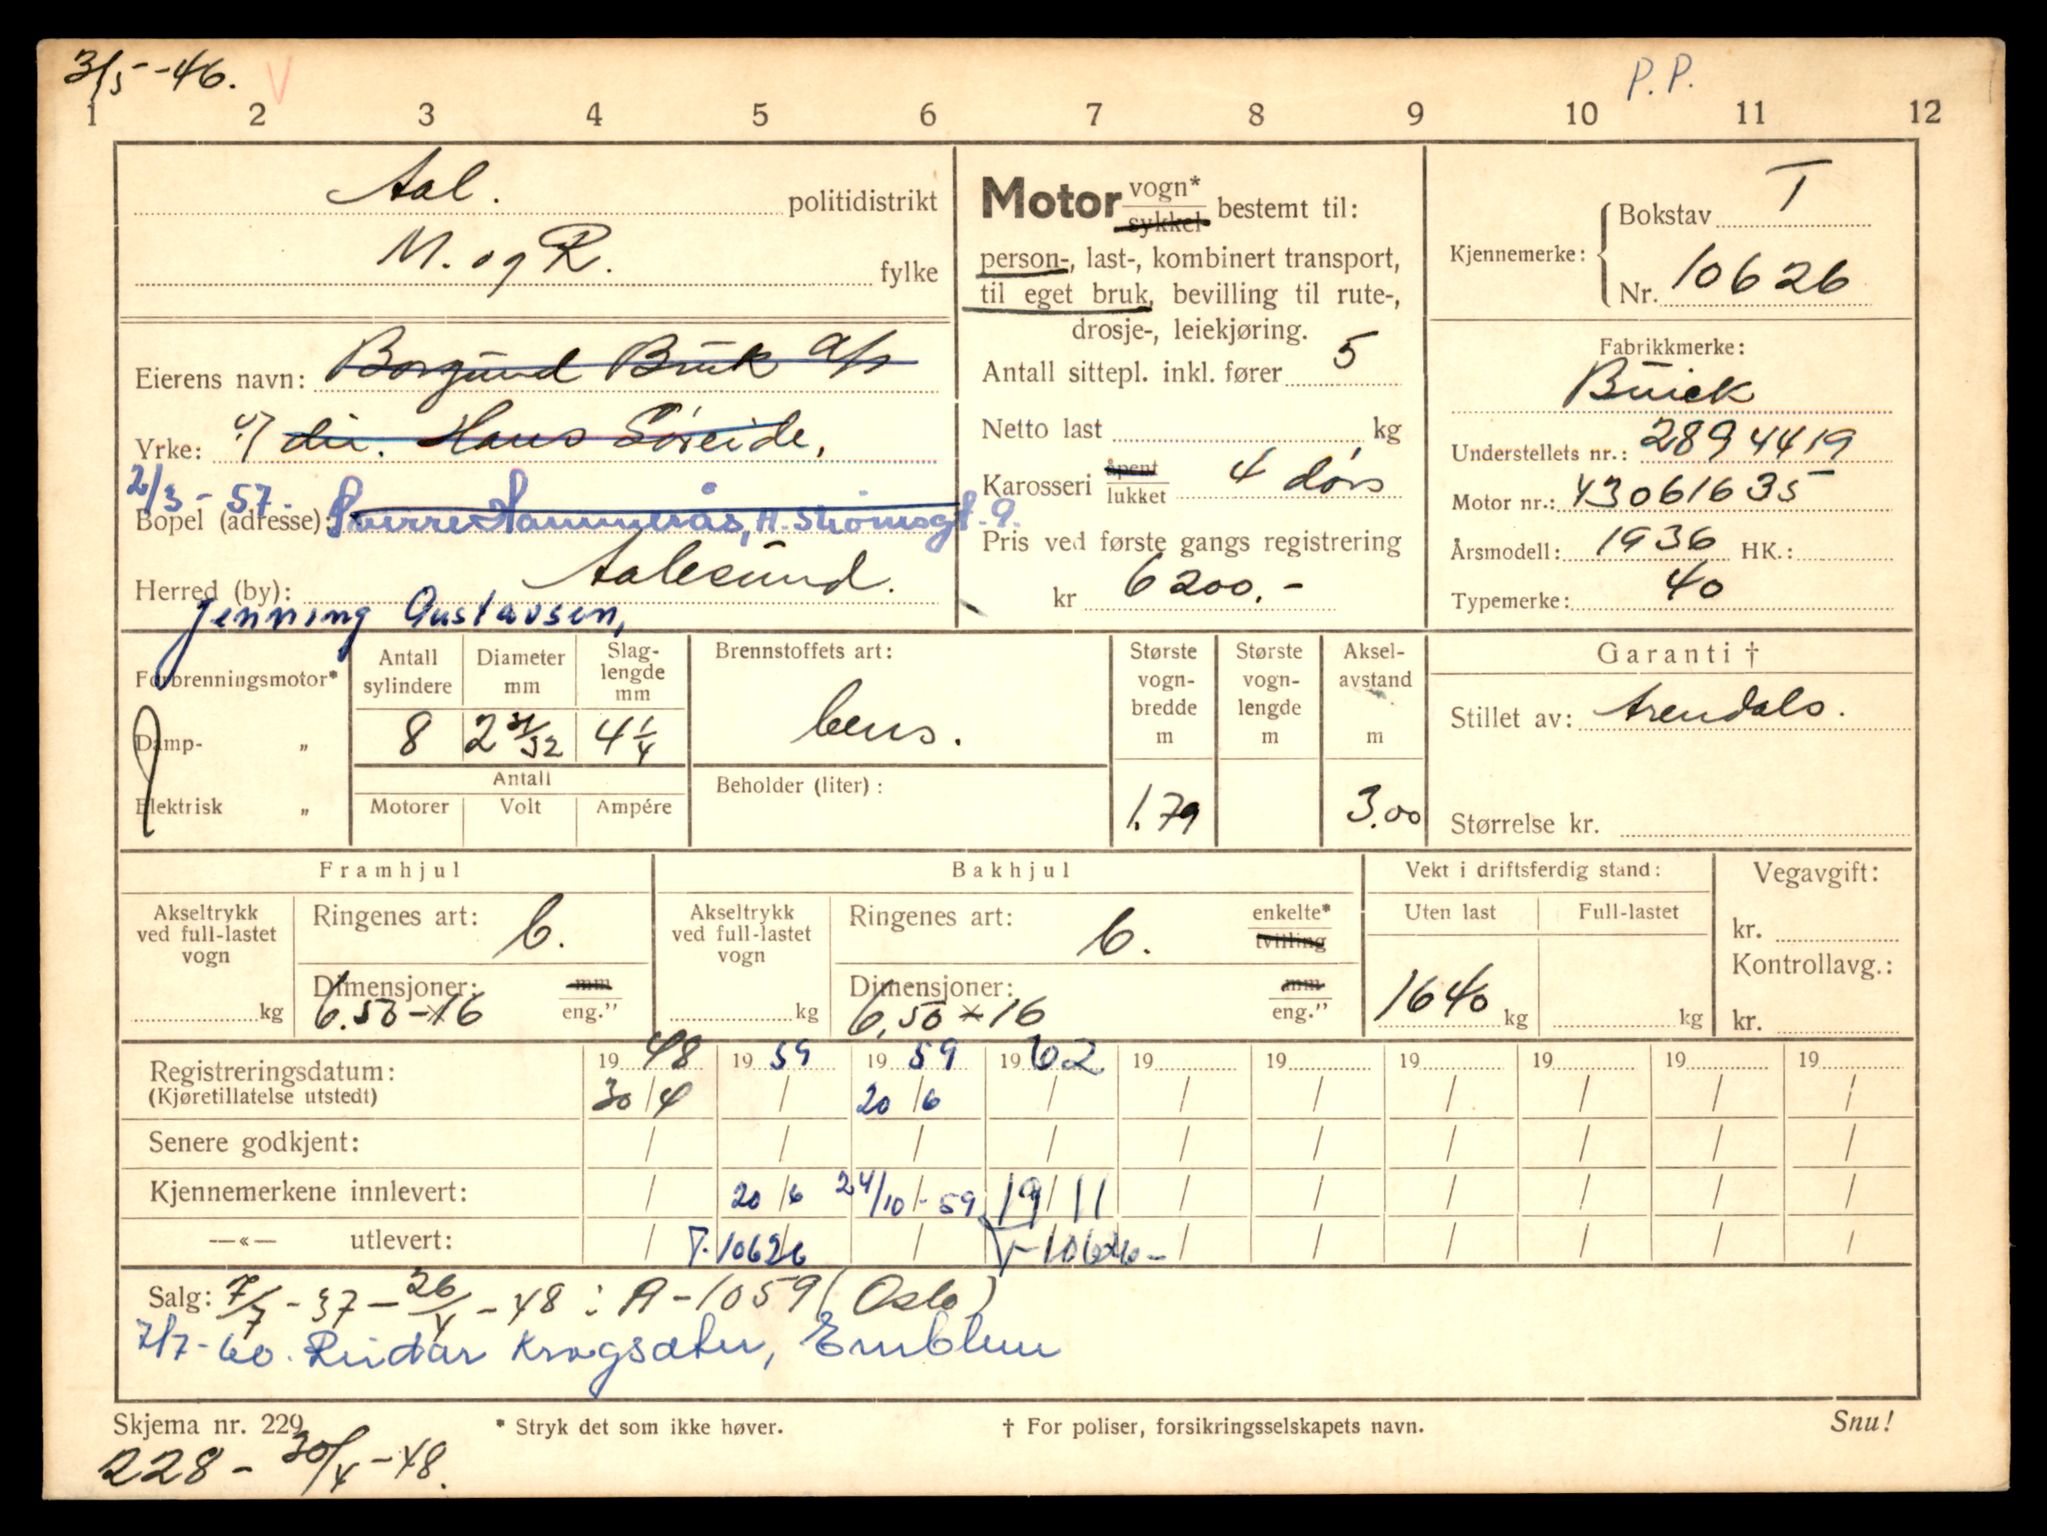 3/5-46. V
P.P.
1 2 3 4 5 6 7 8 9 10 11 12
Aal. politidistrikt
M. og R. fylke
Eierens navn: Borgund Bruk a/s
Yrke: v/ dir. Hans Søreide,
2/3-57.
Bopel (adresse): Sverre Hammerås, H. Strømsgt. 9.
Herred (by): Aalesund.
Jenning Gustavsen,
Motor vogn* / sykkel bestemt til:
person-, last-, kombinert transport,
til eget bruk, bevilling til rute-,
drosje-, leiekjøring.
Antall sittepl. inkl. fører 5
Netto last kg
Karosseri åpent / lukket 4 dørs
Pris ved første gangs registrering
kr 6200.-
Kjennemerke: Bokstav T
Nr. 10626
Fabrikkmerke:
Buick
Understellets nr.: 2894419
Motor nr.: 43061635
Årsmodell: 1936 HK.:
Typemerke: 40
Forbrenningsmotor*
Damp- „
Elektrisk „
Antall sylindere Diameter mm Slag-lengde mm
8 2 31/32 4 1/4
Antall
Motorer Volt Ampére
Brennstoffets art:
bens.
Beholder (liter):
Største vogn-bredde m
1.79
Største vogn-lengde m
Aksel-avstand m
3.00
Garanti †
Stillet av: Arendals.
Størrelse kr.
Framhjul
Akseltrykk ved full-lastet vogn
kg
Ringenes art: b.
Dimensjoner: mm / eng."
6.50-16
Bakhjul
Akseltrykk ved full-lastet vogn
kg
Ringenes art: b. enkelte* / tvilling
Dimensjoner: mm / eng."
6,50 × 16
Vekt i driftsferdig stand:
Uten last Full-lastet
1640 kg kg
Vegavgift:
kr.
Kontrollavg.:
kr.
Registreringsdatum: 19 48 19 59 19 59 19 62 19 19 19 19 19 19
(Kjøretillatelse utstedt) 30/4 / 20/6 / / / / / / /
Senere godkjent: / / / / / / / / / /
Kjennemerkene innlevert: / 20/6 24/10-59 19/11 / / / / / /
—«— utlevert: / T.10626 / T-10626- / / / / / /
Salg: 7/7-37-26/4-48: A-1059 (Oslo)
7/7-60. Reidar Krogsæter, Emblem
Skjema nr. 229 * Stryk det som ikke høver. † For poliser, forsikringsselskapets navn. Snu!
228-30/4-48.